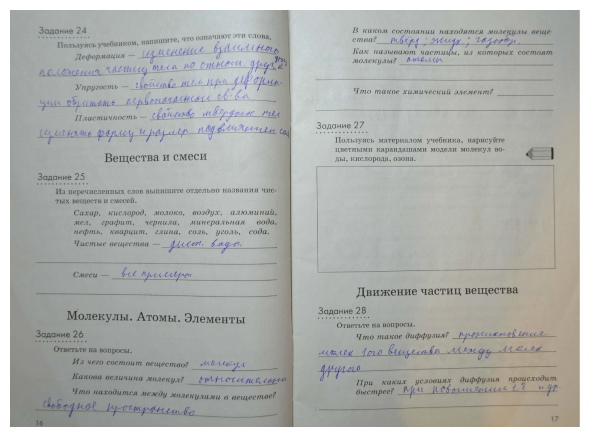 Задание 24
Пользуясь учебником, напишите, что означают эти слова.
Деформация — изменение взаимного
положения частиц тела по относит. друг друга
Упругость — свойство тел при деформа-
ции обретать первоначальн св-ва
Пластичность — свойство твердых тел
изменять форму и размер под
Вещества и смеси
Задание 25
Из перечисленных слов выпишите отдельно названия чис-
тых веществ и смесей.
Сахар, кислород, молоко, воздух, алюминий,
мел, графит, чернила, минеральная вода,
нефть, кварцит, глина, соль, уголь, сода.
Чистые вещества — дист. вода
Смеси — все примеры
Молекулы. Атомы. Элементы
Задание 26
Ответьте на вопросы.
Из чего состоит вещество? молекул
Какова величина молекул? относительно
Что находится между молекулами в веществе?
свободное пространство
16
В каком состоянии находятся молекулы веще-
ства? тверд; жидк; газообр.
Как называют частицы, из которых состоят
молекулы? атомы
Что такое химический элемент?
Задание 27
Пользуясь материалом учебника, нарисуйте
цветными карандашами модели молекул во-
ды, кислорода, озона.
Движение частиц вещества
Задание 28
Ответьте на вопросы.
Что такое диффузия? проникновение
молек 1ого вещества между молек
другого
При каких условиях диффузия происходит
быстрее? при повышении t°
17